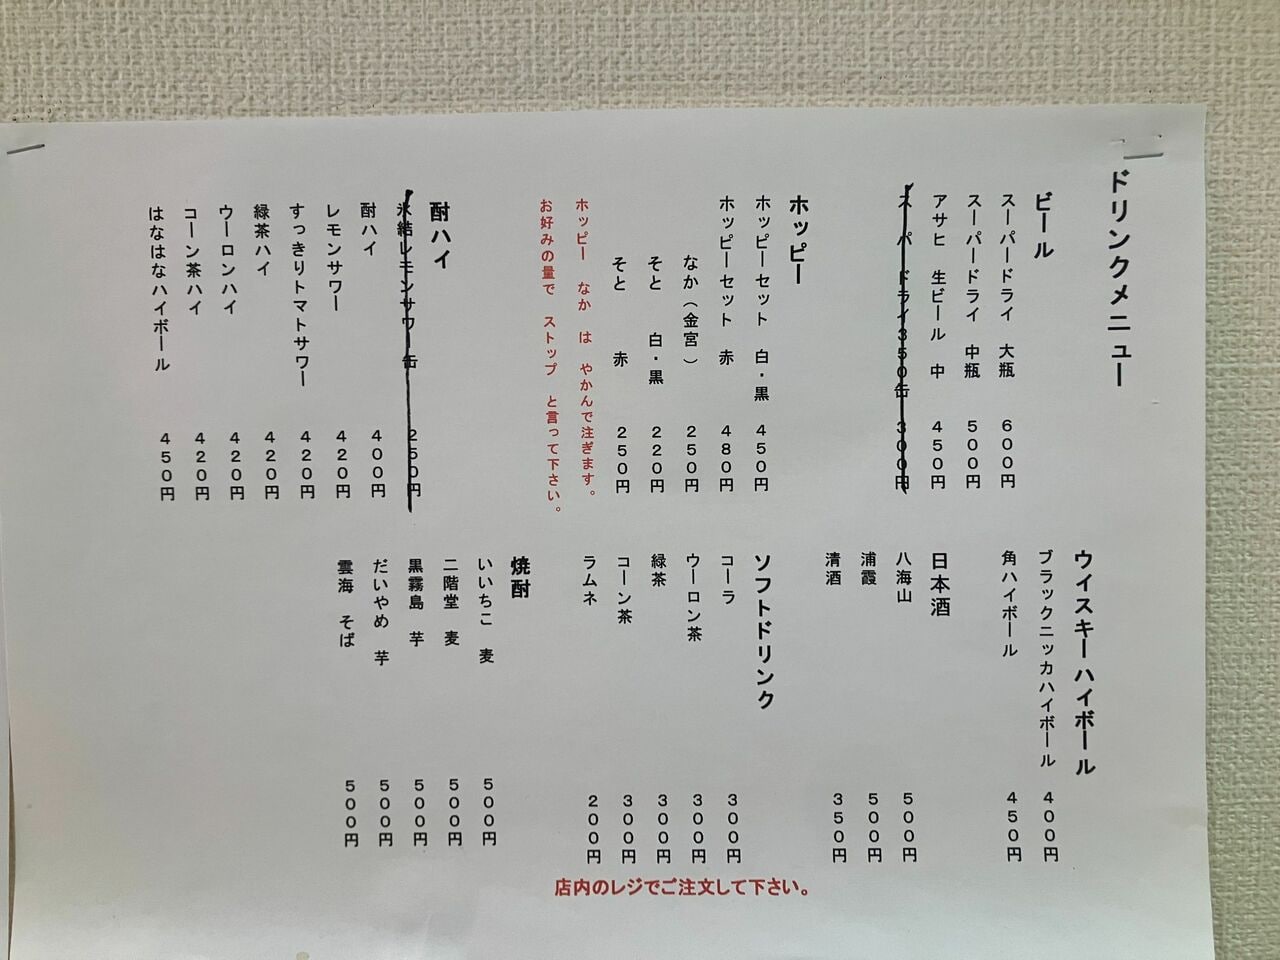 ドリンクメニュー
ビール
スーパードライ 大瓶 600円
スーパードライ 中瓶 500円
アサヒ 生ビール 中 450円
スーパードライ350缶 300円
ホッピー
ホッピーセット 白・黒 450円
ホッピーセット 赤 480円
なか(金宮) 250円
そと 白・黒 220円
そと 赤 250円
ホッピー なか は やかんで注ぎます。
お好みの量で ストップ と言って下さい。
酎ハイ
氷結レモンサワー缶 250円
酎ハイ 400円
レモンサワー 420円
すっきりトマトサワー 420円
緑茶ハイ 420円
ウーロンハイ 420円
コーン茶ハイ 420円
はなはなハイボール 450円
ウイスキーハイボール
ブラックニッカハイボール 400円
角ハイボール 450円
日本酒
八海山 500円
浦霞 500円
清酒 350円
ソフトドリンク
コーラ 300円
ウーロン茶 300円
緑茶 300円
コーン茶 300円
ラムネ 200円
焼酎
いいちこ 麦 500円
二階堂 麦 500円
黒霧島 芋 500円
だいやめ 芋 500円
雲海 そば 500円
店内のレジでご注文して下さい。